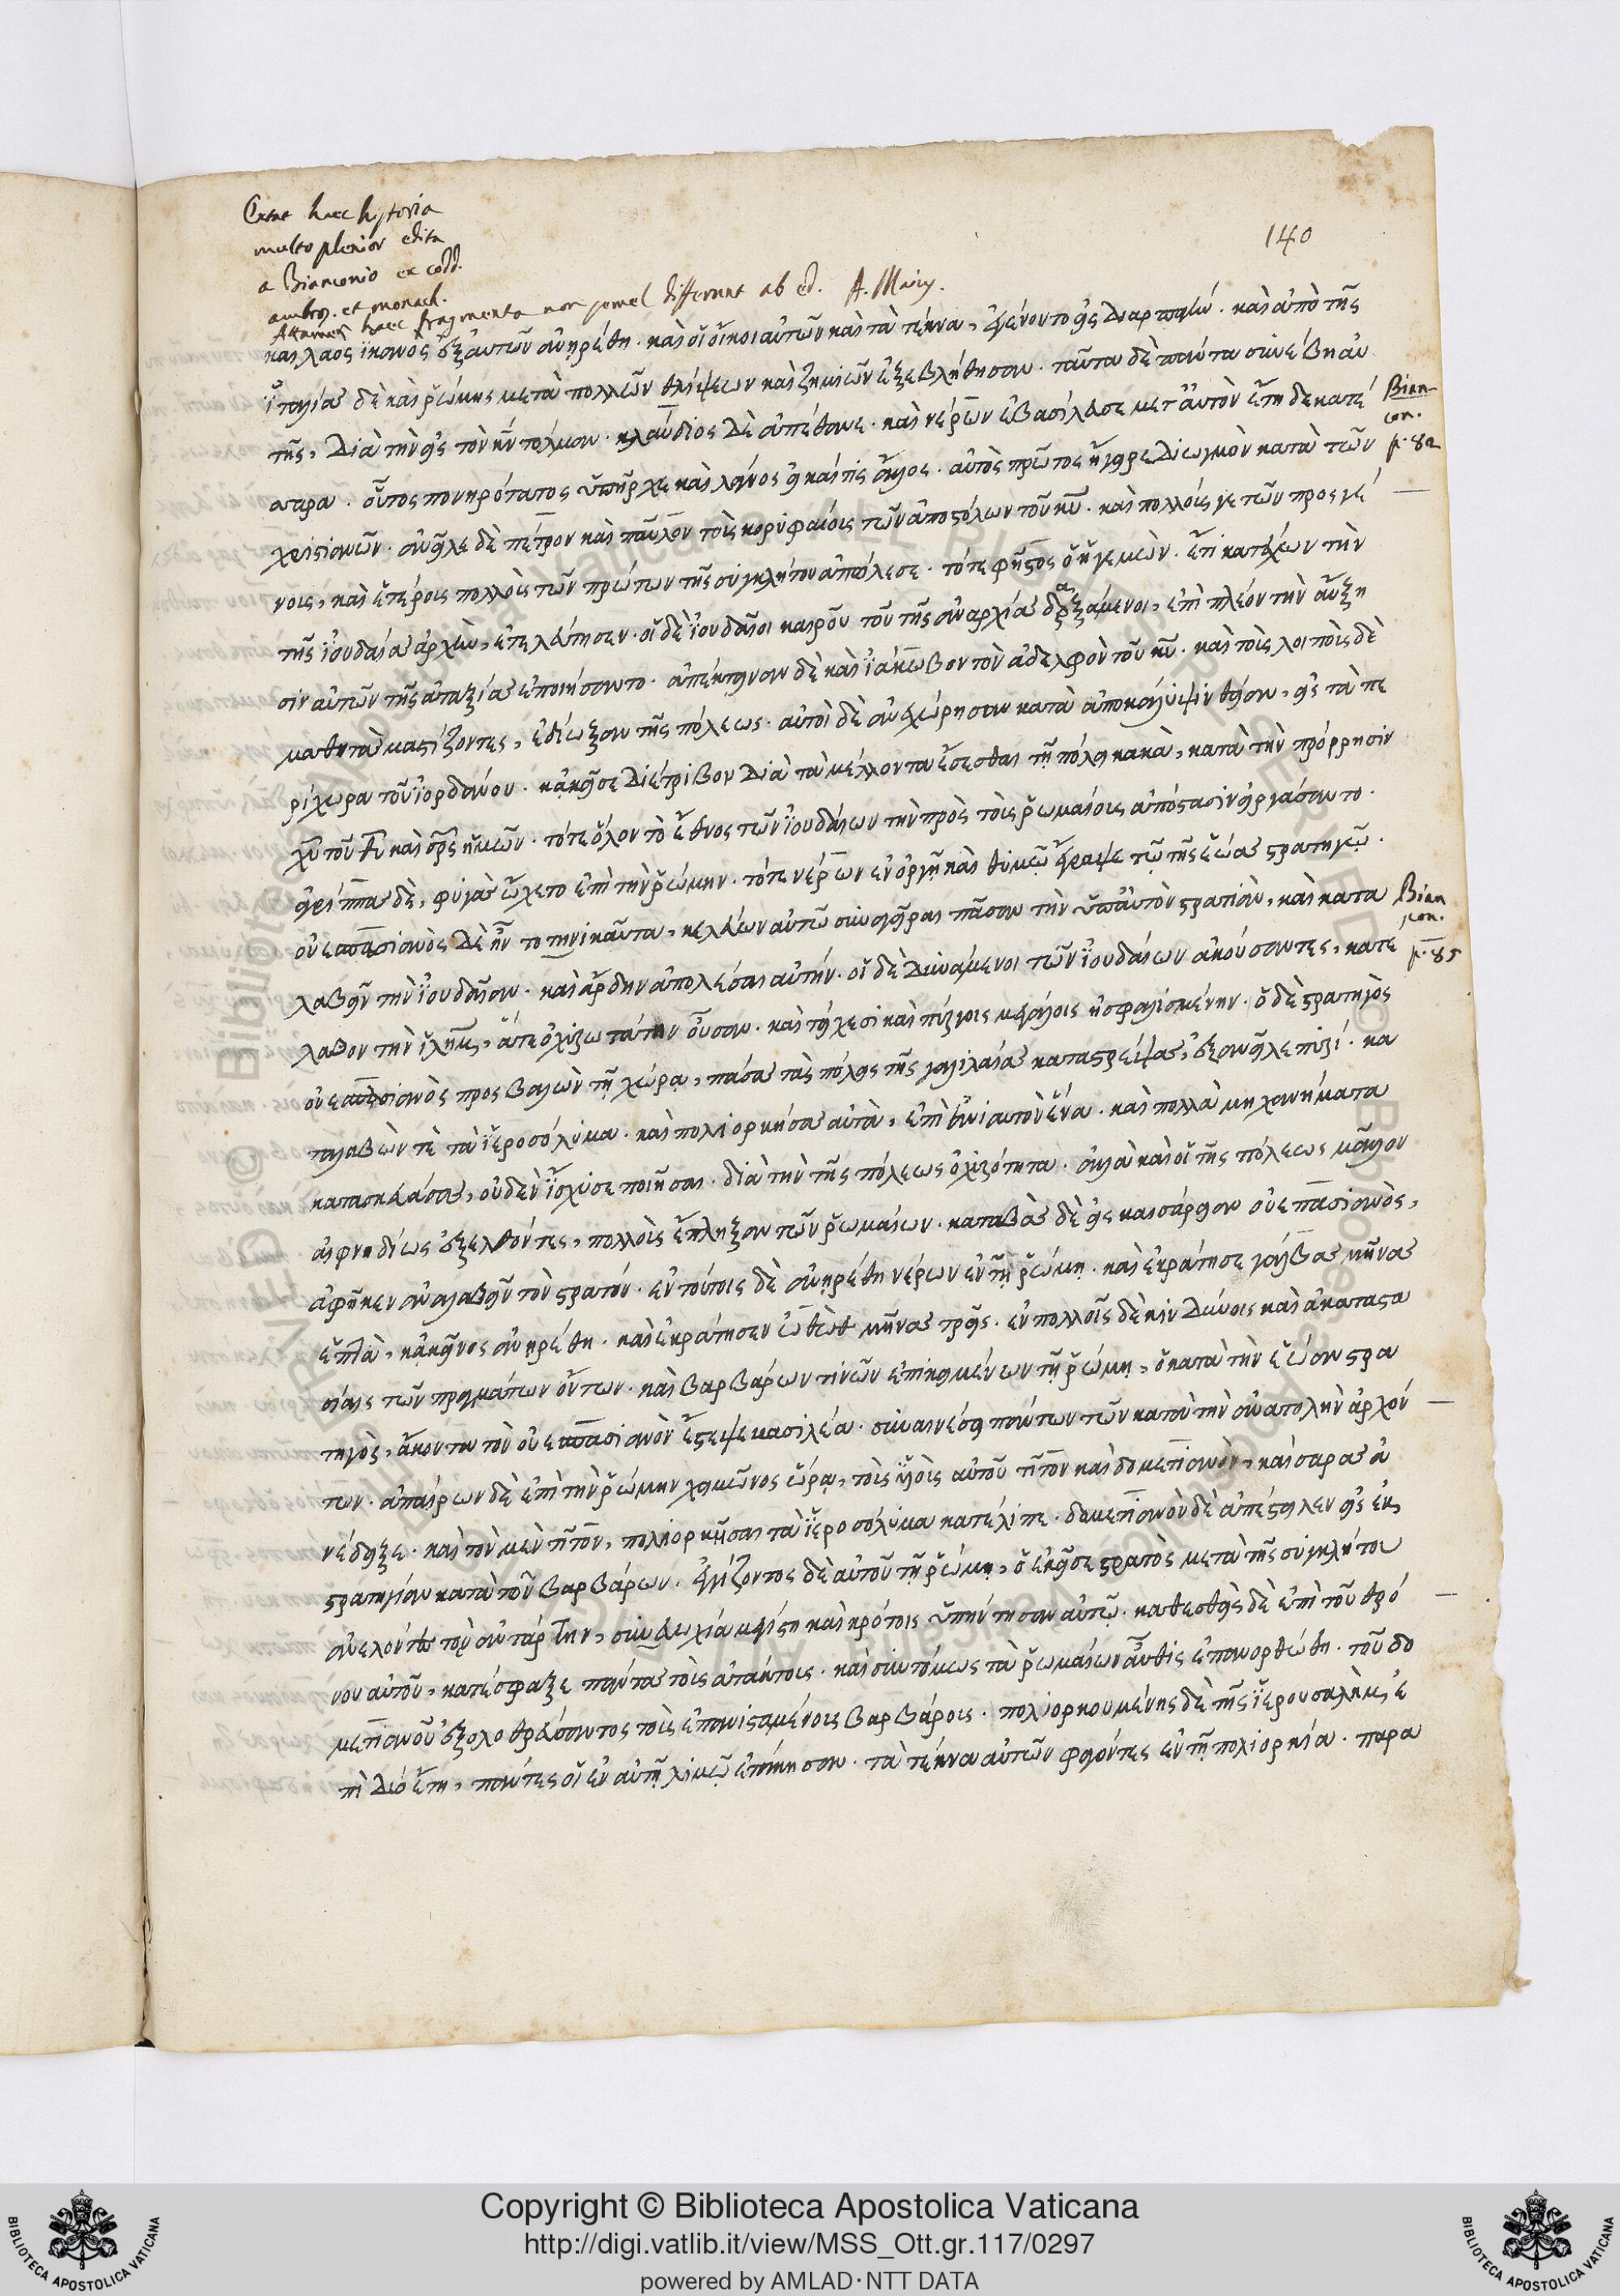 Extat haec historia
multo plenior edita
a Bianconio ex codd.
ambros. et monach.
Attamen haec fragmenta non semel differunt ab ed. A. Maius.
140
καὶ λαος ἱκανὸς ἐξ αυτῶν ἀνῃρέθη· καὶ οἱ οἶκοι αὐτῶν καὶ τὰ τέκνα, ἐγένοντο εἰς διαρπαγήν. καὶ ἀπὸ τῆς
ἰταλίας δὲ καὶ ῥώμης μετὰ πολλῶν θλίψεων καὶ ζημιῶν ἐξεβλήθησαν. ταῦτα δὲ πάντα συνέβη αὐ
τῆς, διὰ τὴν εἰς τὸν κν τόλμαν. κλαύδιος δὲ ἀπέθανε. καὶ νέρων ἐβασίλευσε μετ' αὐτὸν ἔτη δεκατέ
Bian-
con.
p. 82
σσαρα. οὗτος πονηρότατος ὑπῆρχε καὶ εἰ καί τις ἄλλος. αὐτὸς πρῶτος ἤγειρε διωγμὸν κατὰ τῶν
χριστιανῶν. ἀνεῖλε δὲ πέτρον καὶ παῦλον τοὺς κορυφαίους τῶν ἀποστόλων τοῦ κυ. καὶ πολλούς γε τῶν προσγε
νους, καὶ ἑτέρους πολλοὺς τῶν πρώτων τῆς συγκλήτου ἀπώλεσε. τότε φῆστος ὁ ἡγεμὼν. ἔτι κατέχων τὴν
τῆς ἰουδαίας ἀρχὴν, ἐτελεύτησεν. οἱ δὲ ἰουδαῖοι καιροῦ τοῦ τῆς ἀναρχίας δραξάμενοι, ἐπὶ πλέον τὴν αὔξη
σιν αὐτῶν τῆς ἀταξίας ἐποιήσαντο. ἀπέκτειναν δὲ καὶ ἰάκωβον τὸν ἀδελφὸν τοῦ κυ. καὶ τοὺς λοιποὺς δὲ
μαθητὰς μαστίζοντες, ἐδίωξαν τῆς πόλεως. αὐτοὶ δὲ ἀνεχώρησαν κατὰ ἀποκάλυψιν θείαν, εἰς τὰ πε
ρίχωρα τοῦ ἰορδάνου. κἀκεῖσε διέτριβον διὰ τὰ μέλλοντα ἔσεσθαι τῇ πόλει κακὰ, κατὰ τὴν πρόρρησιν
χυ τοῦ θυ καὶ σρς ἡμῶν. τότε ὅλον τὸ ἔθνος τῶν ἰουδαίων τὴν πρὸς τοὺς ῥωμαίους ἀπόστασιν εἰργάσαντο.
ἀγρίππας δὲ, φυγὰς ᾤχετο ἐπὶ τὴν ῥώμην. τότε νέρων ἐν ὀργῇ καὶ θυμῷ ἔγραψε τῷ τῆς ἑῴας στρατηγῷ.
οὐεσπασιανὸς δὲ ἦν το τηνικαῦτα, κελεύων αὐτῷ συναγεῖραι πᾶσαν τὴν ὑπ' αὐτὸν στρατιὰν, καὶ κατα
Bian
con.
p. 85
λαβεῖν τὴν ἰουδαίαν. καὶ ἄρδην ἀπολέσαι αὐτήν. οἱ δὲ δυνάμενοι τῶν ἰουδαίων ἀκούσαντες, κατέ
λαβον τὴν ἰλημ, ἅτε ὀχυρωτάτην οὖσαν. καὶ τείχεσι καὶ πύργοις μεγάλοις ἠσφαλισμένην. ὁ δὲ στρατηγὸς
οὐεσπασιανὸς προσβαλὼν τῇ χώρᾳ, πάσας τὰς πόλεις τῆς γαλιλαίας καταστρέψας, ἐξανεῖλε πυρί. κα
ταλαβὼν τὲ τὰ ἱεροσόλυμα. καὶ πολιορκήσας αὐτὰ, ἐπὶ ἐνιαυτὸν ἕνα. καὶ πολλὰ μηχανήματα
κατασκευάσας, οὐδὲν ἴσχυσε ποιῆσαι. διὰ τὴν τῆς πόλεως ὀχυρότητα. ἀλλὰ καὶ οἱ τῆς πόλεως μᾶλλον
αἰφνιδίως ἐξελθόντες, πολλοὺς ἔπληξαν τῶν ῥωμαίων. καταβὰς δὲ εἰς καισάρειαν οὐεσπασιανὸς,
ἀφῆκεν ἀναλαβεῖν τὸν στρατόν. ἐν τούτοις δὲ ἀνῃρέθη νέρων ἐν τῇ ῥώμῃ. καὶ ἐκράτησε γάλβας μῆνας
ἑπτὰ, κἀκεῖνος ἀνῃρέθη. καὶ ἐκράτησεν ὤθωθ μῆνας τρεῖς. ἐν πολλοῖς δὲ κινδύνοις καὶ ἀκαταστα
σίαις τῶν πραγμάτων ὄντων. καὶ βαρβάρων τινῶν ἐπικειμένων τῇ ῥώμῃ, ὁ κατὰ τὴν ἑῴαν στρα
τηγὸς, ἄκοντα τὸν οὐεσπασιανὸν ἔστεψε βασιλέα. συναινέσει πάντων τῶν κατὰ τὴν ἀνατολὴν ἀρχόν
των. ἀπαίρων δὲ ἐπὶ τὴν ῥώμην χειμῶνος ὥρᾳ, τοὺς υἱοὺς αὐτοῦ τίτον καὶ δομετιανὸν, καίσαρας ἀ
νέδειξε. καὶ τὸν μὲν τίτον, πολιορκῆσαι τὰ ἱεροσόλυμα κατέλιπε. δομετιανὸν δὲ ἀπέστειλεν εἰς ἐκ
στρατείαν κατὰ τοῦ βαρβάρων. ἐγγίζοντος δὲ αὐτοῦ τῇ ῥώμῃ, ὁ ἐκεῖσε στρατὸς μετὰ τῆς συγκλήτου
ἀνελόντες τὸν ἀντάρτην, σὺν εὐωχία μεγίστη καὶ κρότοις ὑπήντησαν αὐτῷ. καθεσθεὶς δὲ ἐπὶ τοῦ θρό
νου αὐτοῦ, κατέσφαξε πάντας τοὺς ἀτάκτους. καὶ συντόμως τὰ ῥωμαίων αὖθις ἐπανορθώθη. τοῦ δο
μετιανοῦ ἐξολοθρεύσαντος τοὺς ἐπανισταμένους βαρβάρους. πολιορκουμένης δὲ τῆς ἱερουσαλὴμ, ἐ
πὶ δύο ἔτη, πάντες οἱ ἐν αὐτῇ λιμῷ ἐτάκησαν. τὰ τέκνα αὐτῶν φαγόντες ἐν τῇ πολιορκία. παρα
Copyright © Biblioteca Apostolica Vaticana
http://digi.vatlib.it/view/MSS_Ott.gr.117/0297
powered by AMLAD·NTT DATA
BIBLIOTECA APOSTOLICA VATICANA
BIBLIOTECA APOSTOLICA VATICANA